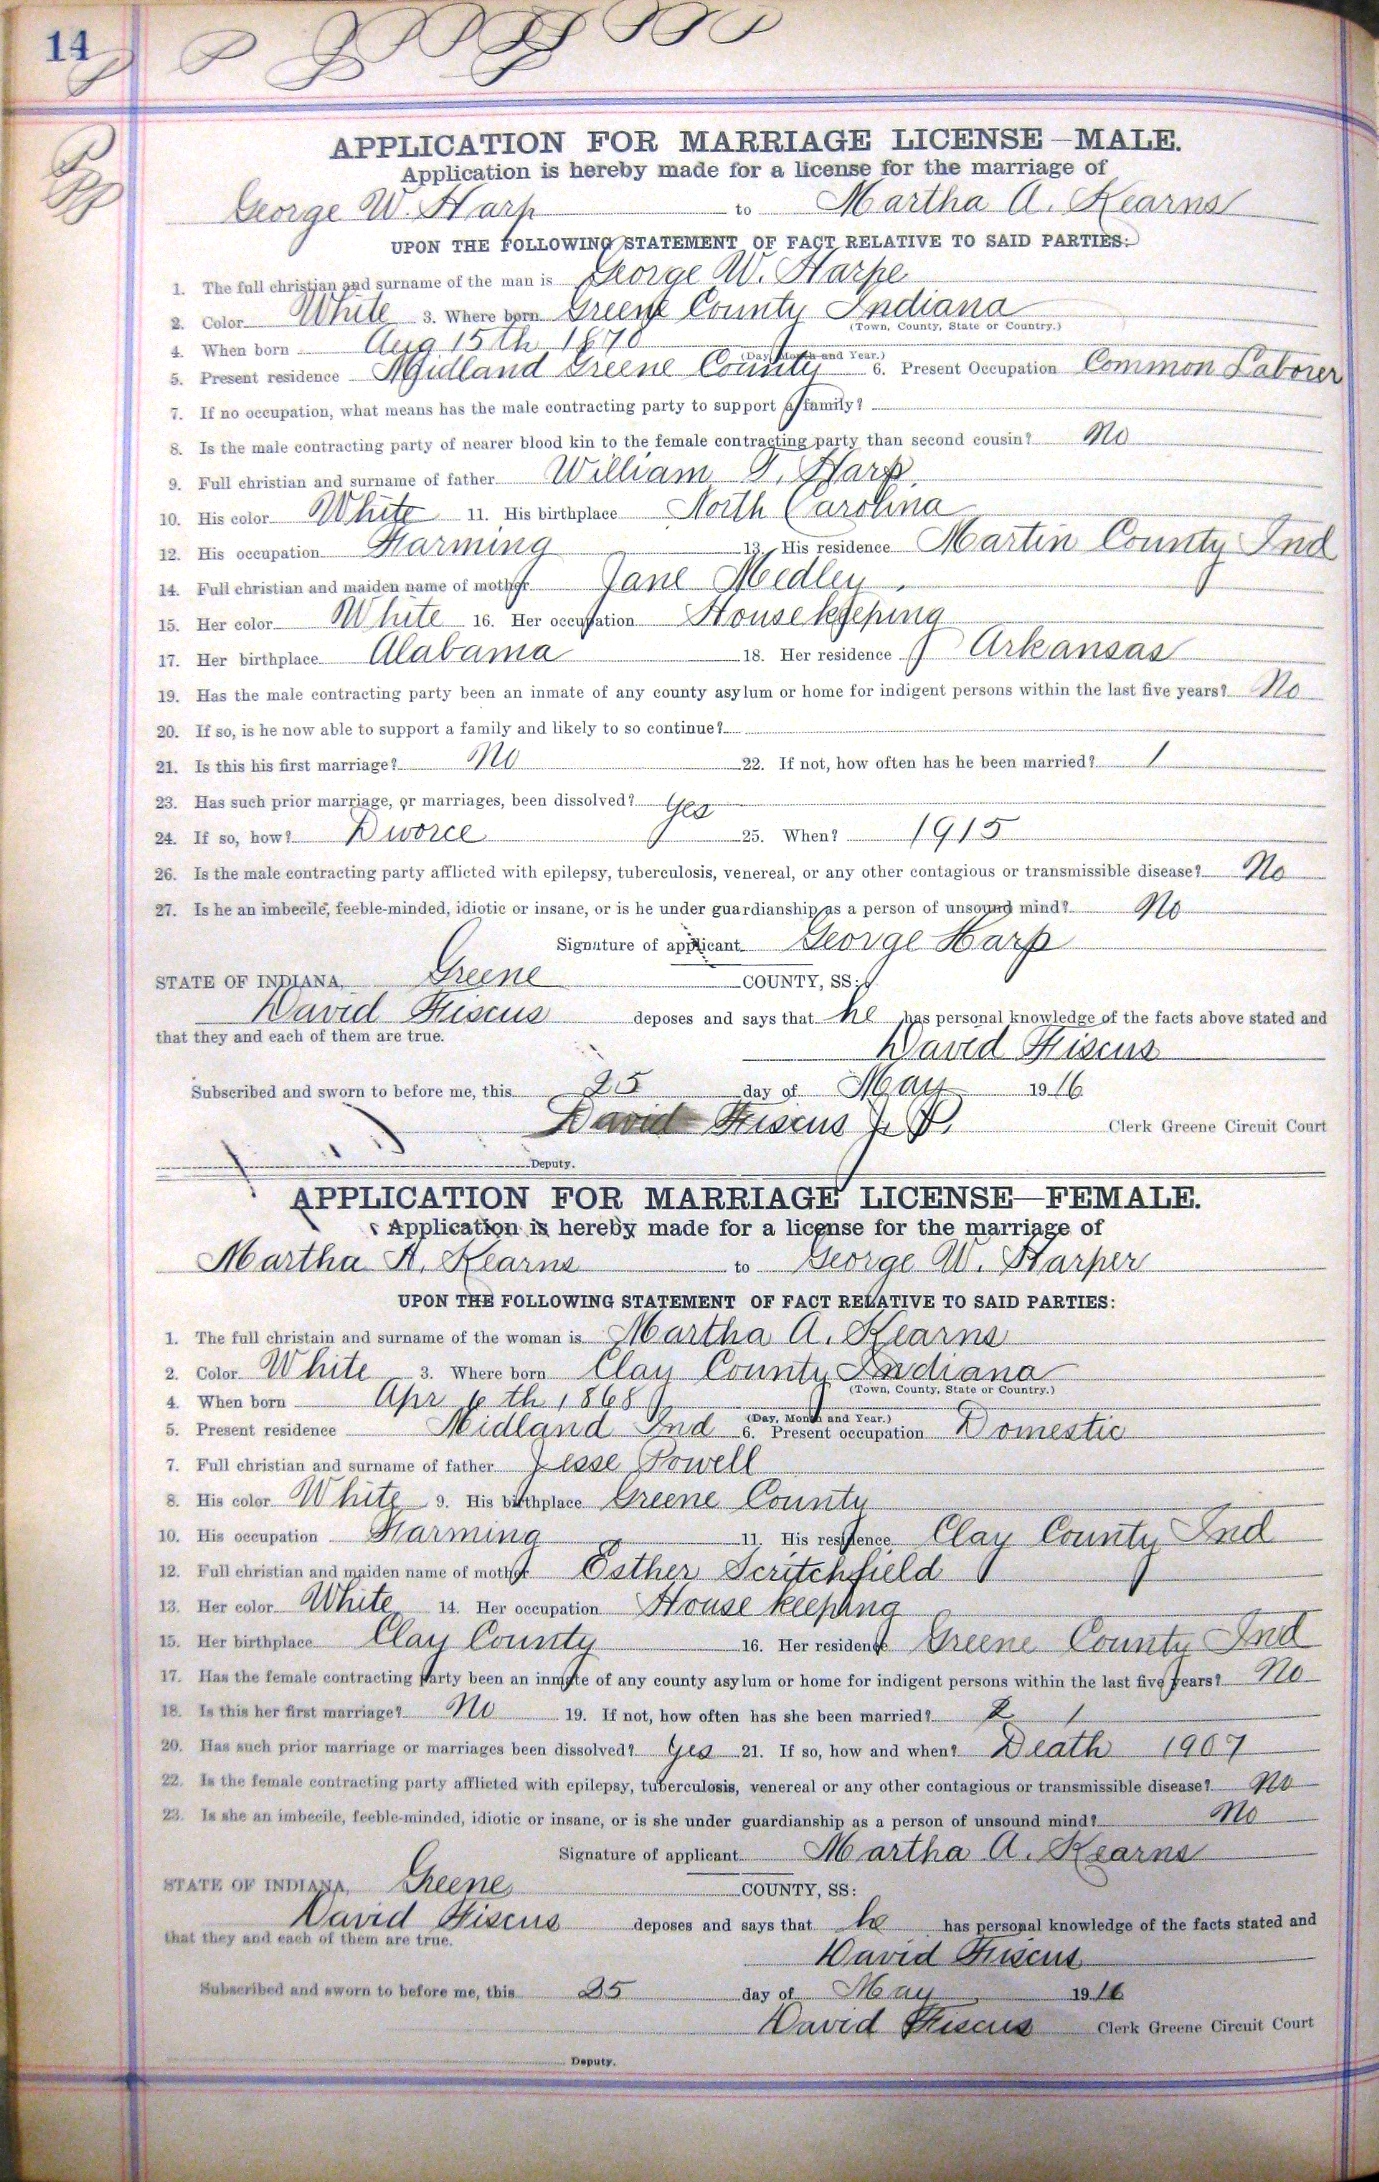 14
APPLICATION FOR MARRIAGE LICENSE—MALE.
Application is hereby made for a license for the marriage of
George W. Harp to Martha A. Kearns
UPON THE FOLLOWING STATEMENT OF FACT RELATIVE TO SAID PARTIES:
1. The full christian and surname of the man is George W. Harpe
2. Color White 3. Where born Greene County Indiana
(Town, County, State or Country.)
4. When born Aug 15th 1870
(Day, Month and Year.)
5. Present residence Midland Greene County 6. Present Occupation Common Laborer
7. If no occupation, what means has the male contracting party to support a family?
8. Is the male contracting party of nearer blood kin to the female contracting party than second cousin? No
9. Full christian and surname of father William T. Harp.
10. His color White 11. His birthplace North Carolina
12. His occupation Farming 13. His residence Martin County Ind
14. Full christian and maiden name of mother Jane Medley.
15. Her color White 16. Her occupation Housekeeping
17. Her birthplace Alabama 18. Her residence Arkansas
19. Has the male contracting party been an inmate of any county asylum or home for indigent persons within the last five years? No
20. If so, is he now able to support a family and likely to so continue?
21. Is this his first marriage? No 22. If not, how often has he been married? 1
23. Has such prior marriage, or marriages, been dissolved? Yes
24. If so, how? Divorce 25. When? 1915
26. Is the male contracting party afflicted with epilepsy, tuberculosis, venereal, or any other contagious or transmissible disease? No
27. Is he an imbecile, feeble-minded, idiotic or insane, or is he under guardianship as a person of unsound mind? No
Signature of applicant George Harp
STATE OF INDIANA, Greene COUNTY, SS:
David Fiscus deposes and says that he has personal knowledge of the facts above stated and
that they and each of them are true.
David Fiscus
Subscribed and sworn to before me, this 25 day of May 1916
David Fiscus J. P. Clerk Greene Circuit Court
Deputy.
APPLICATION FOR MARRIAGE LICENSE—FEMALE.
Application is hereby made for a license for the marriage of
Martha A. Kearns to George W. Harper
UPON THE FOLLOWING STATEMENT OF FACT RELATIVE TO SAID PARTIES:
1. The full christain and surname of the woman is Martha A. Kearns
2. Color White 3. Where born Clay County Indiana
(Town, County, State or Country.)
4. When born Apr 6th 1868
(Day, Month and Year.)
5. Present residence Midland Ind 6. Present occupation Domestic
7. Full christian and surname of father Jesse Powell
8. His color White 9. His birthplace Greene County
10. His occupation Farming 11. His residence Clay County Ind
12. Full christian and maiden name of mother Esther Scritchfield
13. Her color White 14. Her occupation House keeping
15. Her birthplace Clay County 16. Her residence Greene County Ind
17. Has the female contracting party been an inmate of any county asylum or home for indigent persons within the last five years? No
18. Is this her first marriage? No 19. If not, how often has she been married? 1
20. Has such prior marriage or marriages been dissolved? Yes 21. If so, how and when? Death 1907
22. Is the female contracting party afflicted with epilepsy, tuberculosis, venereal or any other contagious or transmissible disease? No
23. Is she an imbecile, feeble-minded, idiotic or insane, or is she under guardianship as a person of unsound mind? No
Signature of applicant Martha A. Kearns
STATE OF INDIANA, Greene COUNTY, SS:
David Fiscus deposes and says that he has personal knowledge of the facts stated and
that they and each of them are true.
David Fiscus
Subscribed and sworn to before me, this 25 day of May 1916
David Fiscus Clerk Greene Circuit Court
Deputy.